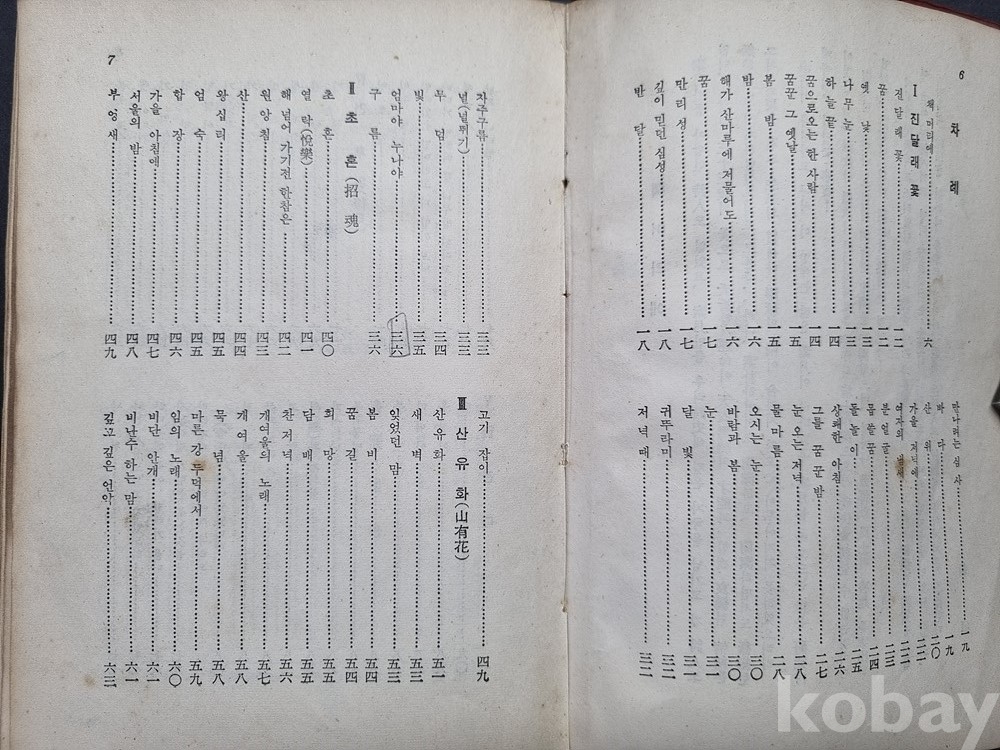 6
차례
책머리에 六
I 진달래꽃
진달래꽃 一二
꿈 一二
옛낯 一三
나무눈 一三
하늘끝 一四
꿈으로오는 한 사람 一四
꿈꾼 그 옛날 一五
봄밤 一五
밤 一六
해가 산마루에 저물어도 一六
꿈 一七
만리성 一七
깊이 믿던 심성 一八
반달 一八
만나려는 심사 一九
바다 一九
산위 二〇
가을 저녁에
여자의 냄새
분얼굴 二三
몹쓸꿈 二四
둘놀이 二五
상쾌한 아침 二六
그를 꿈 꾼 밤 二七
눈 오는 저녁 二八
물마름 二八
오시는 눈 三〇
바람과 봄 三〇
눈 三一
달빛 三一
귀뚜라미 三二
저녁때 三二
7
자주구름 三三
널(널뛰기) 三三
무덤 三四
빛 三五
엄마야 누나야 三六
구름 三六
II 초혼(招魂)
초혼 四〇
열락(悅樂) 四一
해 넘어 가기전 한참은 四二
원앙침 四三
산 四四
왕십리 四五
엄숙 四五
합장 四六
가을 아침에 四七
서울의 밤 四八
부엉새 四九
고기잡이 四九
III 산유화(山有花)
산유화 五一
새벽 五一
잊었던 맘 五三
봄비 五四
꿈길 五四
희망 五五
담배 五五
찬저녁 五六
개여울의 노래 五七
개여울 五八
묵념 五八
마른 강 두덕에서 五九
임의 노래 六〇
비단 안개 六一
비난수 하는 맘 六一
깊고 깊은 언약 六三
kobay